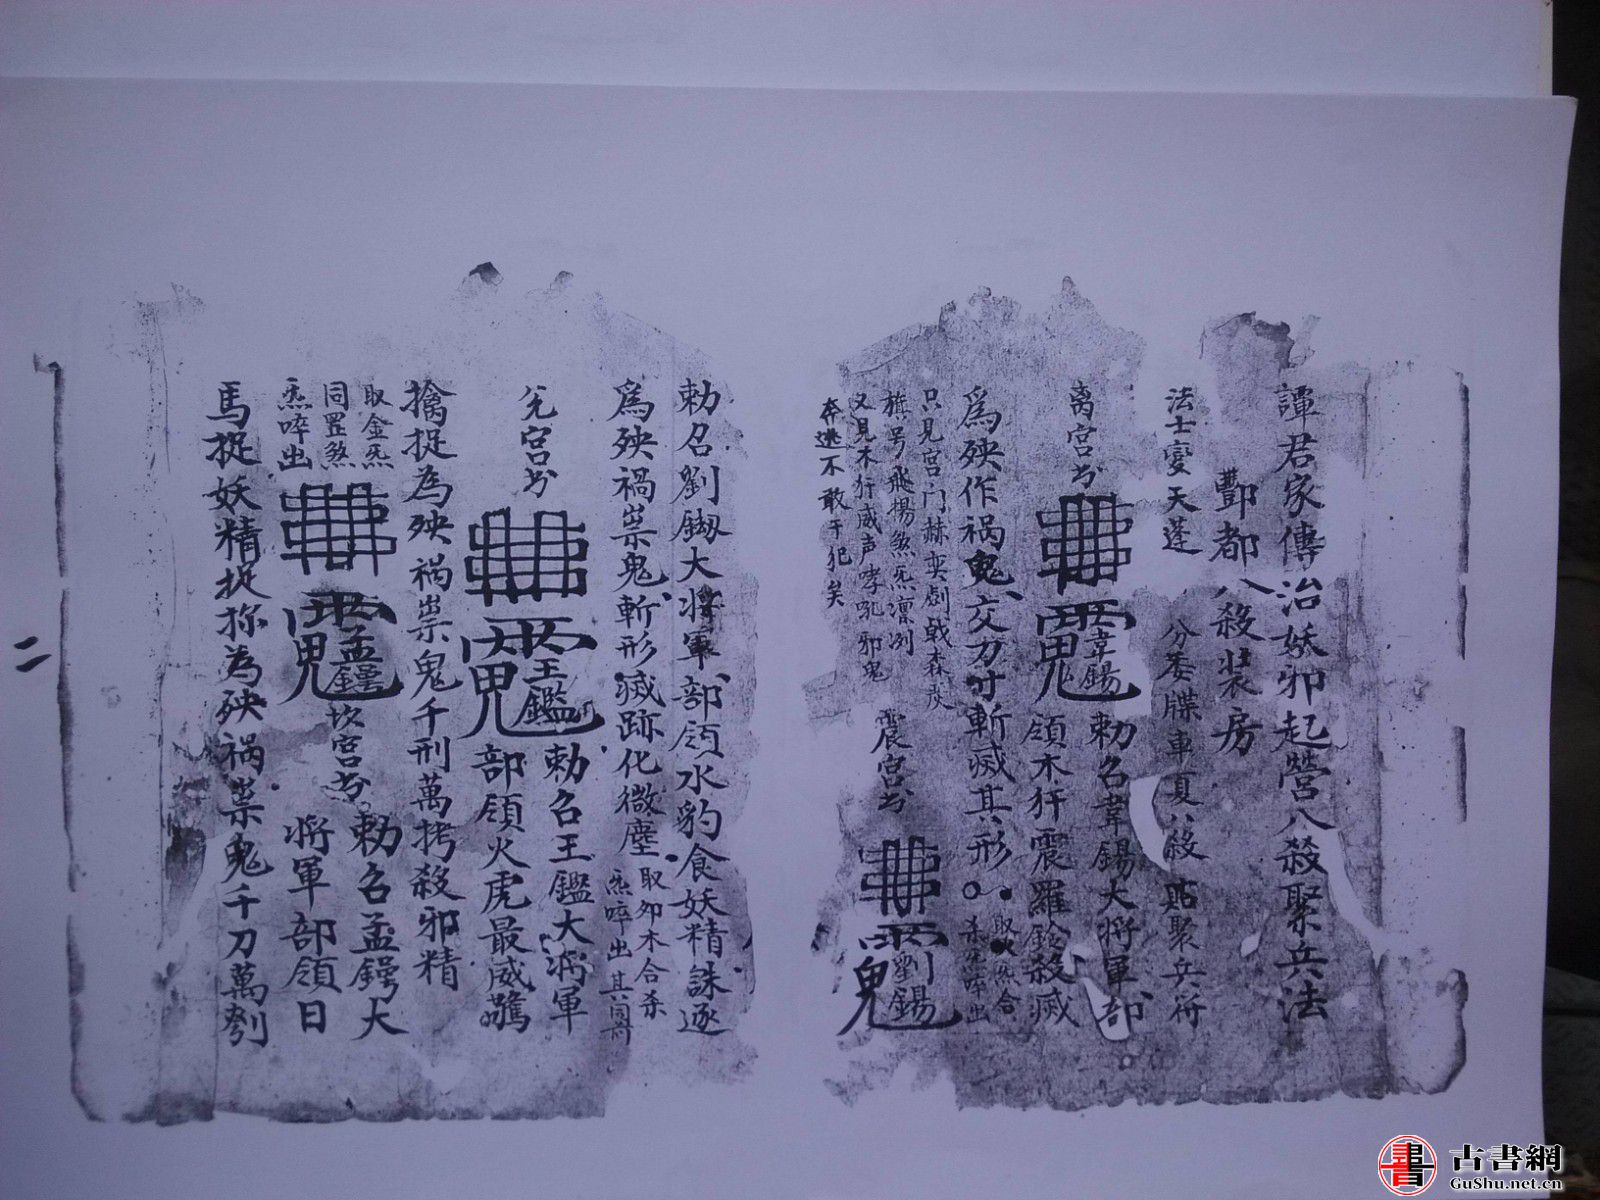 譚君家傳治妖邪起營八殺聚兵法
酆都八殺裝房
法士变天蓬 分委牒車夏八殺 點聚兵符
离宮 韋錫 勅召韋錫大將軍部
領木犴震羅 殺滅
為殃作禍鬼交刀寸斬滅其形
合
啐出
只見宮门赫奕劍戟森
旌号飛揚煞炁凛冽
又見木犴威声哮吼邪鬼
奔逃不敢干犯矣
震宮 劉錫
勅召劉 大將軍部領水豹食妖精誅逐
為殃禍祟鬼斬形滅跡化微塵
取卯木合杀
炁啐出 其同前
兑宮 王鑑 勅召王鑑大將軍
部領火虎最威
擒捉為殃禍祟鬼千刑萬拷殺邪精
取金炁
同罡煞
炁啐出
孟鍔 坎宮 勅召孟鍔大
將軍部領日
馬捉妖精捉 為殃禍祟鬼千刀萬
二
書
古書網
GuShu.net.cn